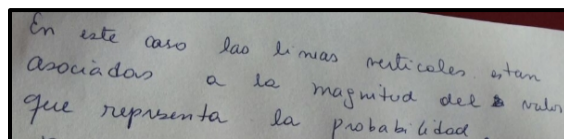 En este caso las lineas verticales. estan
asociadas a la magnitud del valor
que representa la probabilidad